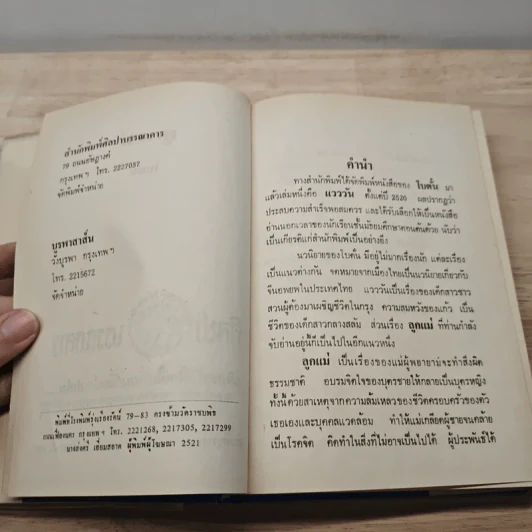 สำนักพิมพ์ศิลปาบรรณาคาร
79 ถนนอัษฎางค์
กรุงเทพฯ โทร. 2227037
จัดพิมพ์จำหน่าย
บูรพาสาส์น
วังบูรพา กรุงเทพฯ
โทร. 2215672
จัดจำหน่าย
พิมพ์ที่โรงพิมพ์รุ่งเรืองรัตน์ 79-83 ตรงข้ามวัดราชบพิธ
ถนนเฟื่องนคร กรุงเทพฯ โทร. 2221268, 2217305, 2217299
นางสงศรี เอื่อมสอาด ผู้พิมพ์ผู้โฆษณา 2521
คำนำ
ทางสำนักพิมพ์ได้จัดพิมพ์หนังสือของ โบตั๋น มา
แล้วเล่มหนึ่งคือ แวววัน ตั้งแต่ปี 2520 ผลปรากฏว่า
ประสบความสำเร็จพอสมควร และได้รับเลือกให้เป็นหนังสือ
อ่านนอกเวลาของนักเรียนชั้นมัธยมศึกษาตอนต้นด้วย นับว่า
เป็นเกียรติแก่สำนักพิมพ์เป็นอย่างยิ่ง
นวนิยายของโบตั๋น มีอยู่ไม่มากเรื่องนัก แต่ละเรื่อง
เป็นแนวต่างกัน จดหมายจากเมืองไทยเป็นนวนิยายเกี่ยวกับ
จีนอพยพในประเทศไทย แวววันเป็นเรื่องของเด็กสาวชาว
สวนผู้ต้องมาเผชิญชีวิตในกรุง ความสมหวังของแก้ว เป็น
ชีวิตของเด็กสาวกลางสลัม ส่วนเรื่อง ลูกแม่ ที่ท่านกำลัง
จับอ่านอยู่นี้ก็เป็นไปในอีกแนวหนึ่ง
ลูกแม่ เป็นเรื่องของแม่ผู้พยายามจะทำสิ่งผิด
ธรรมชาติ อบรมจิตใจของบุตรชายให้กลายเป็นบุตรหญิง
ทั้งนี้ด้วยสาเหตุจากความล้มเหลวของชีวิตครอบครัวของตัว
เธอเองและบุคคลแวดล้อม ทำให้แม่เกลียดผู้ชายจนคล้าย
เป็นโรคจิต คิดทำในสิ่งที่ไม่อาจเป็นไปได้ ผู้ประพันธ์ได้